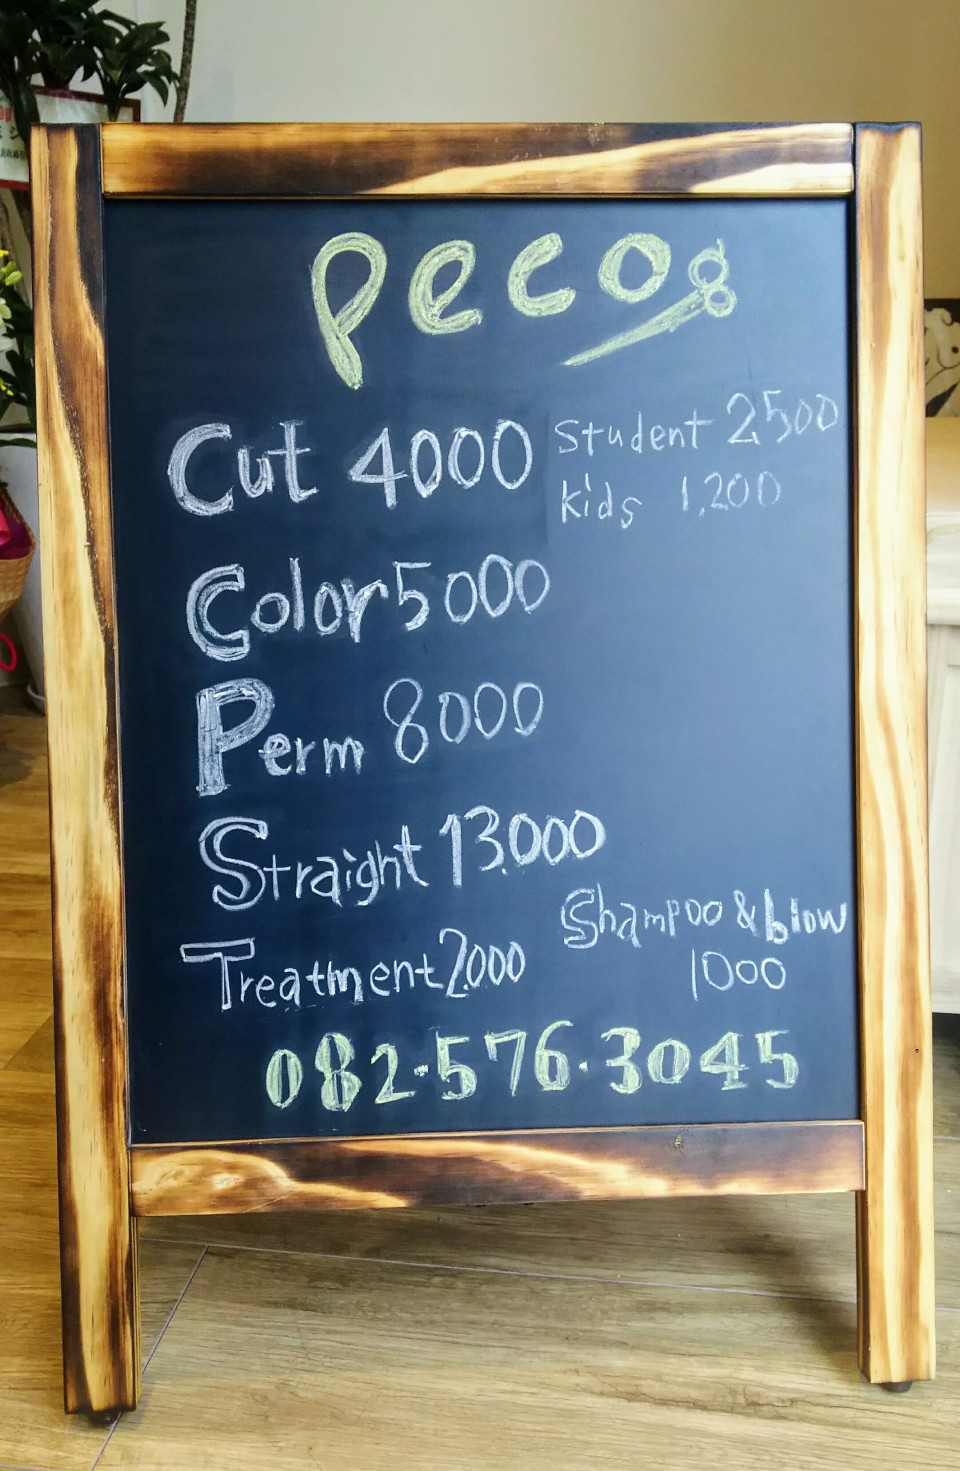 peco
Cut 4000
Student 2500
kids 1,200
Color 5000
Perm 8000
Straight 13.000
Treatment 2.000
Shampoo & blow
1000
082-576-3045